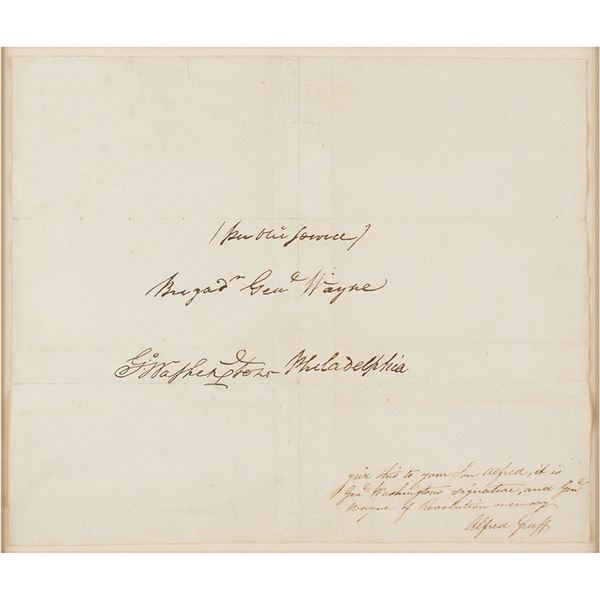 (Public Service)
Brigadr Genl Wayne
Go Washington Philadelphia
give this to your Son Alfred, it is
Genl Washingtons signature, and Genl
Wayne of Revolution memory
Alfred Graff